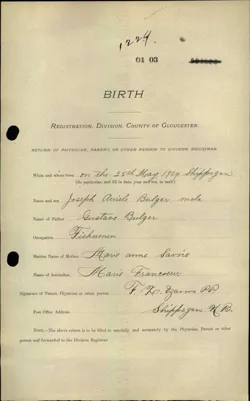 1224
01 03
BIRTH
REGISTRATION, DIVISION, COUNTY OF GLOUCESTER.
RETURN OF PHYSICIAN, PARENT, OR OTHER PERSON TO DIVISION REGISTRAR.
When and where born, on the 25th May 1909 Shippegan
(be particular and fill in date, year and sex, in each)
Name and sex, Joseph Bulger male
Name of Father Gustave Bulger
Occupation, Fisherman
Maiden Name of Mother, Marie anne Savoie
Name of Accoucheur, Marie Francoeur
Signature of Parent, Physician or other person, F.
Post Office Address, Shippegan N.B.
NOTE.—The above return is to be filled in carefully and accurately by the Physician, Parent or other
person and forwarded to the Division Registrar